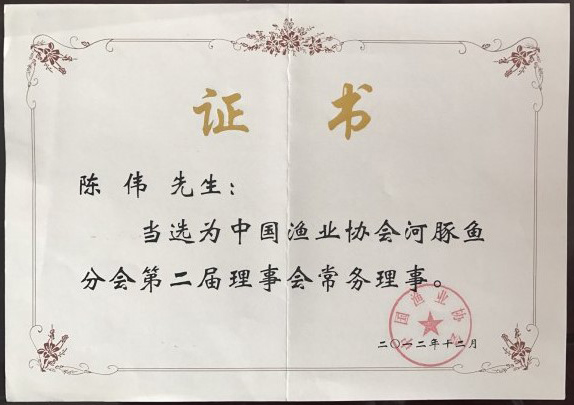 证 书
陈 伟 先生：
当选为中国渔业协会河豚鱼
分会第二届理事会常务理事。
中国渔业协会
二〇一二年十二月